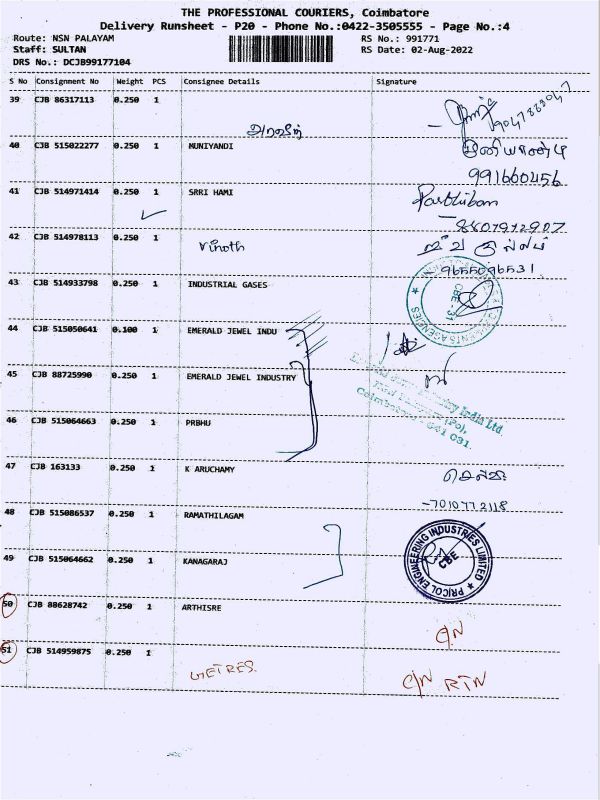 THE PROFESSIONAL COURIERS, Coimbatore
Delivery Runsheet - P20 - Phone No.:0422-3505555 - Page No.:4
Route: NSN PALAYAM
RS No.: 991771
Staff: SULTAN
RS Date: 02-Aug-2022
DRS No.: DCJB99177104
S No Consignment No Weight PCS Consignee Details Signature
39 CJB 86317113 0.250 1
அரவிந்
40 CJB 515022277 0.250 1 MUNIYANDI முனியாண்டி
991660456
41 CJB 514971414 0.250 1 SRRI HAMI Parthiban
8807972907
42 CJB 514978113 0.250 1 Vinoth
9655096531
43 CJB 514933798 0.250 1 INDUSTRIAL GASES
CBE - 31
44 CJB 515050641 0.100 1 EMERALD JEWEL INDU
45 CJB 88725990 0.250 1 EMERALD JEWEL INDUSTRY
Industry India Ltd.
(Po),
Coimbatore - 641 031.
46 CJB 515064663 0.250 1 PRBHU
47 CJB 163133 0.250 1 K ARUCHAMY
-7010772118
48 CJB 515086537 0.250 1 RAMATHILAGAM
PRICOL ENGINEERING INDUSTRIES LIMITED
CBE
49 CJB 515064662 0.250 1 KANAGARAJ
50 CJB 88628742 0.250 1 ARTHISRE
C/N
51 CJB 514959875 0.250 1
METRES
C/N RTN